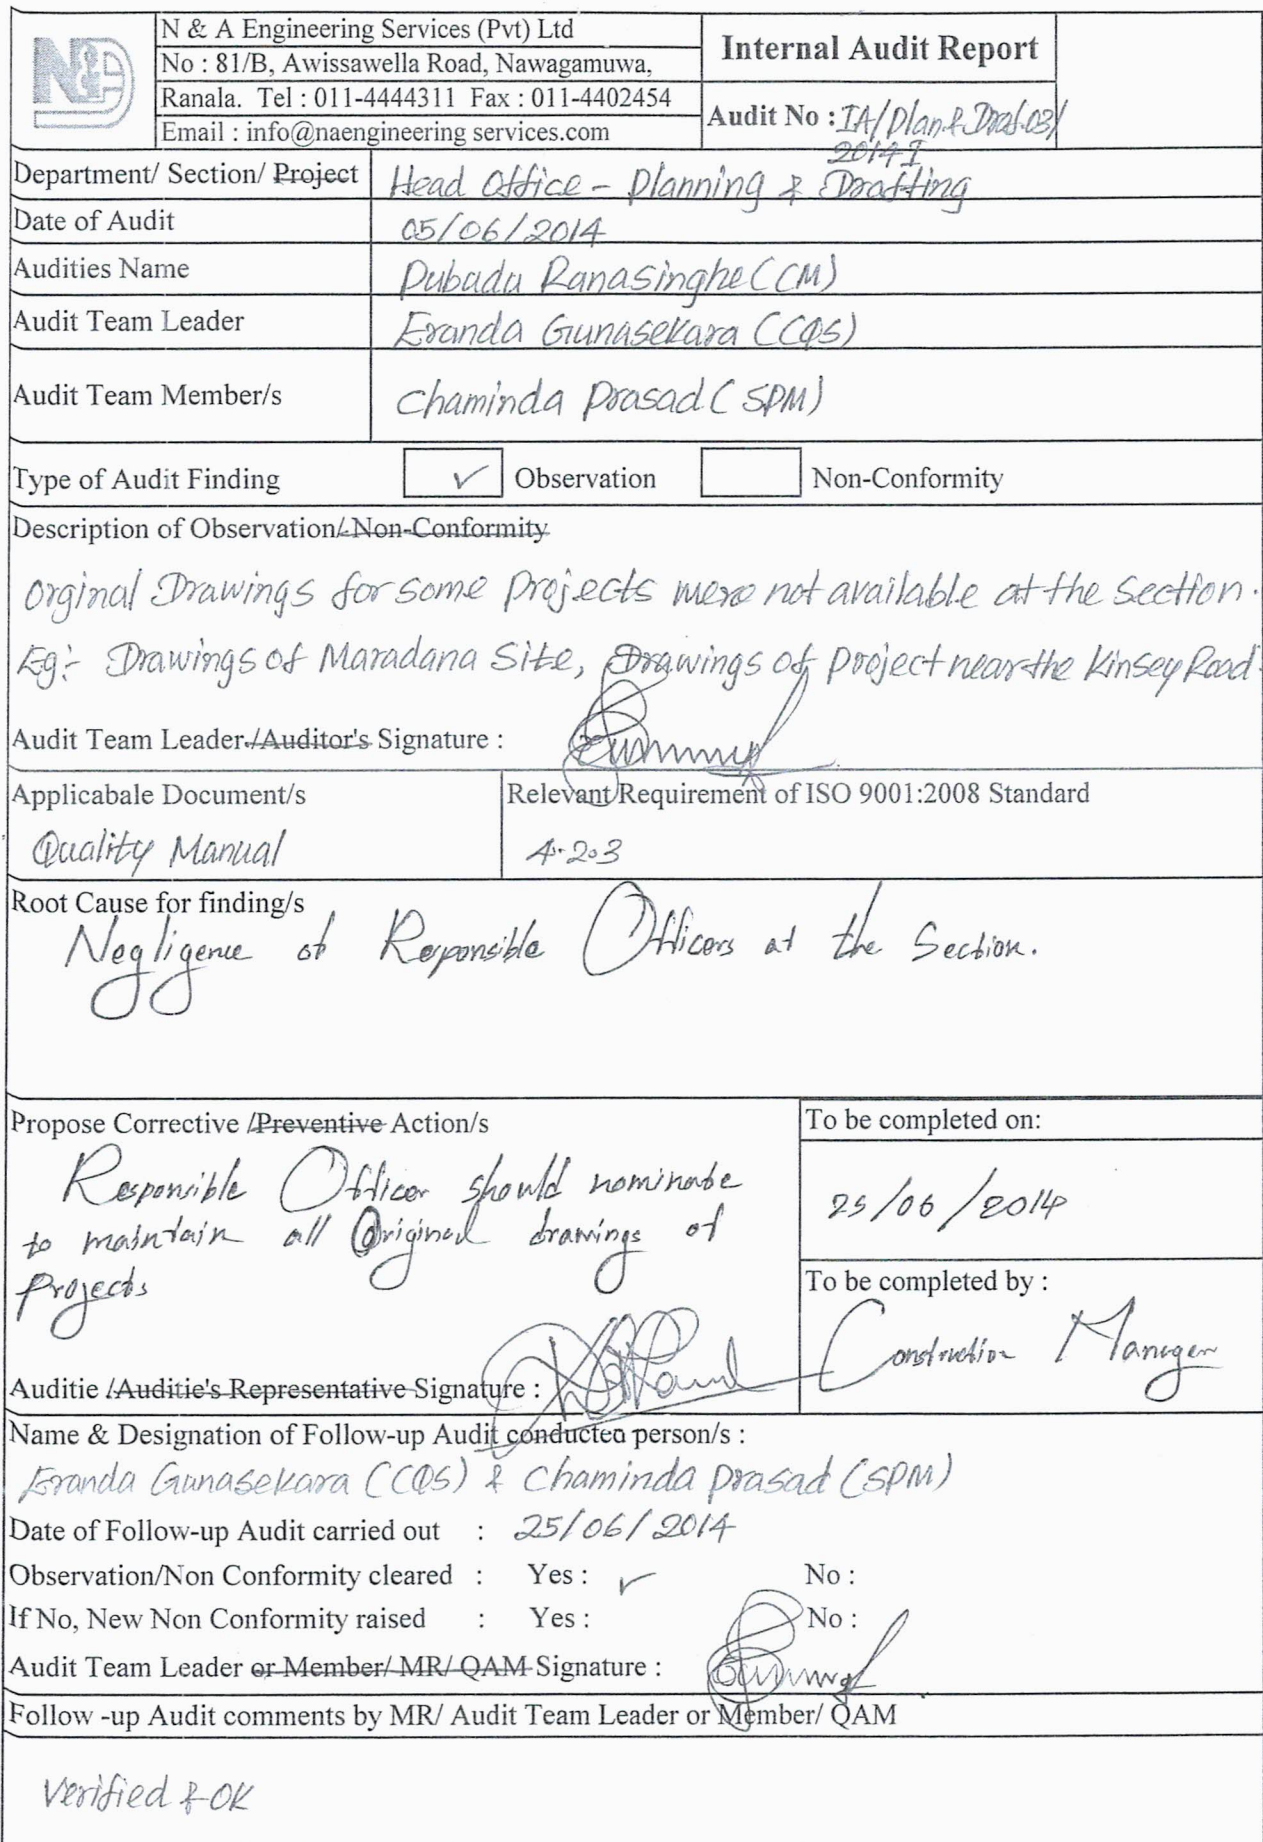 N&A
N & A Engineering Services (Pvt) Ltd
No : 81/B, Awissawella Road, Nawagamuwa,
Ranala. Tel : 011-4444311 Fax : 011-4402454
Email : info@naengineering services.com
Internal Audit Report
Audit No : IA/Plan & Draf.03/
2014 I
Department/ Section/ Project Head Office - Planning & Drafting
Date of Audit 05/06/2014
Audities Name Pubadu Ranasinghe (CM)
Audit Team Leader Eranda Gunasekara (CQS)
Audit Team Member/s Chaminda Prasad (SPM)
Type of Audit Finding ✓ Observation Non-Conformity
Description of Observation/ Non-Conformity
Orginal Drawings for some Projects were not available at the Section.
Eg:- Drawings of Maradana Site, Drawings of Project near the Kinsey Road.
Audit Team Leader /Auditor's Signature :
Applicabale Document/s
Quality Manual
Relevant Requirement of ISO 9001:2008 Standard
4.2.3
Root Cause for finding/s
Negligence of Responsible Officers at the Section.
Propose Corrective /Preventive Action/s
Responsible Officer should nominate
to maintain all Original drawings of
Projects
To be completed on:
25/06/2014
To be completed by :
Construction Manager
Auditie /Auditie's Representative Signature :
Name & Designation of Follow-up Audit conducted person/s :
Eranda Gunasekara (CQS) & Chaminda Prasad (SPM)
Date of Follow-up Audit carried out : 25/06/2014
Observation/Non Conformity cleared : Yes : ✓ No :
If No, New Non Conformity raised : Yes : No :
Audit Team Leader or Member/ MR/ QAM Signature :
Follow -up Audit comments by MR/ Audit Team Leader or Member/ QAM
Verified & OK